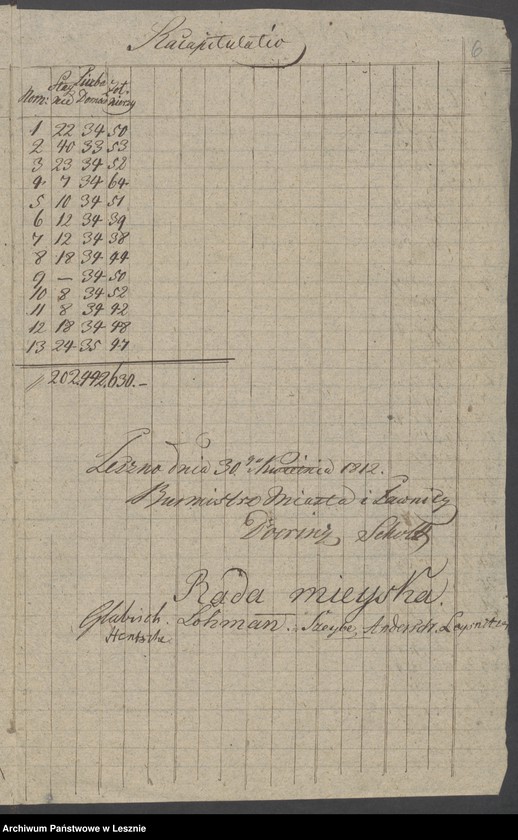 Racapitulatio
6
Nom: Stay nie Liczba Domów Żoł nierzy
1 22 34 50
2 40 33 53
3 23 34 52
4 7 34 64
5 10 34 51
6 12 34 39
7 12 34 38
8 18 34 44
9 — 34 50
10 8 34 52
11 8 34 42
12 18 34 48
13 24 35 47
202. 442. 630. —
Leszno dnia 30 go Kwietnia 1812.
Burmistrz Miasta i Ławnicy
Doering Scholtz
Rada mieyska.
Glabisch. Lohman.
Hentschke
Archiwum Państwowe w Lesznie